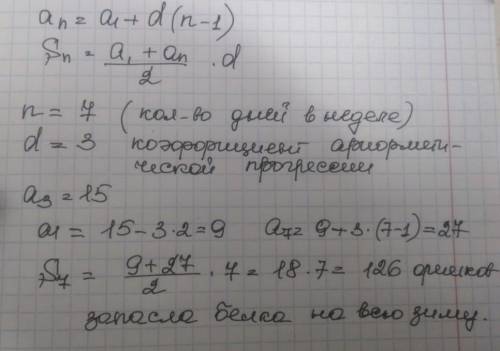 aₙ = a₁ + d (n-1)
Sₙ = (a₁ + aₙ)/2 · d
n = 7 (кол-во дней в неделе)
d = 3 коэффициент ариормети-
ческой прогрессии
a₃ = 15
a₁ = 15 - 3·2 = 9 a₇ = 9 + 3·(7-1) = 27
S₇ = (9 + 27)/2 · 7 = 18·7 = 126
запасла белка на всю зиму.